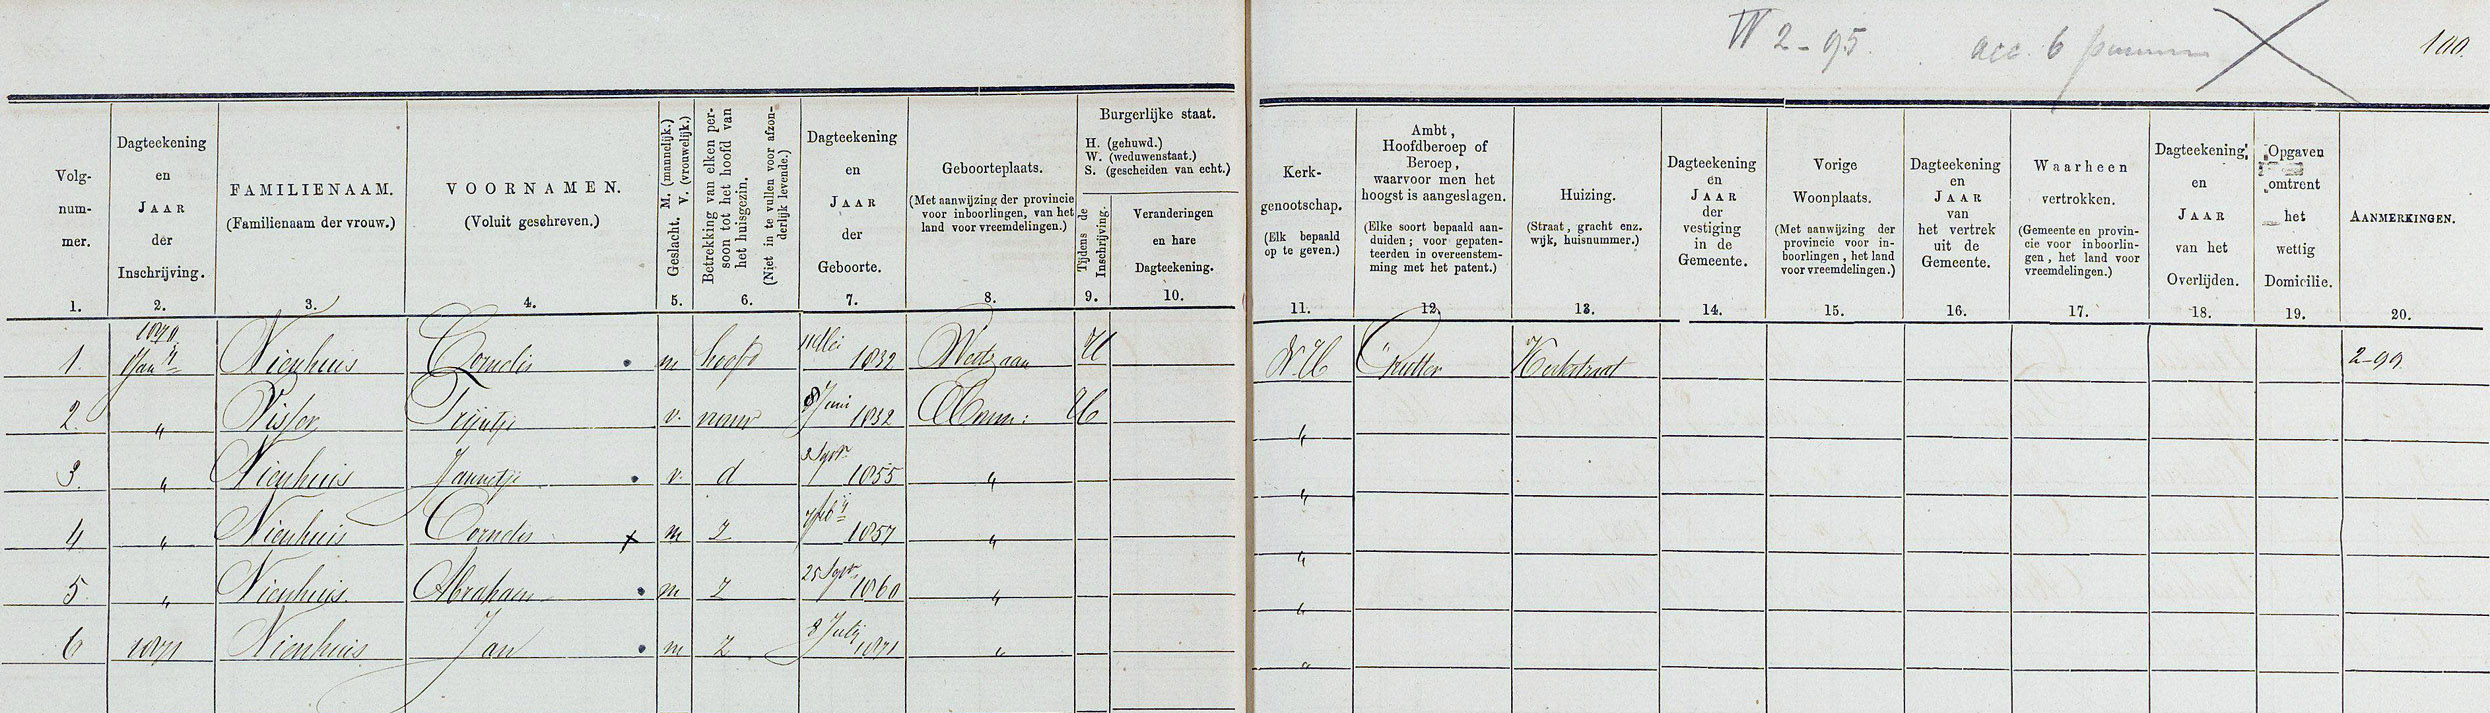 W 2-95. acc. 6 100.
Volg-
num-
mer.
1.
Dagteekening
en
JAAR
der
Inschrijving.
2.
FAMILIENAAM.
(Familienaam der vrouw.)
3.
VOORNAMEN.
(Voluit geschreven.)
4.
Geslacht. M. (mannelijk.)
V. (vrouwelijk.)
5.
Betrekking van elken per-
soon tot het hoofd van
het huisgezin.
(Niet in te vullen voor afzon-
derlijk levende.)
6.
Dagteekening
en
JAAR
der
Geboorte.
7.
Geboorteplaats.
(Met aanwijzing der provincie
voor inboorlingen, van het
land voor vreemdelingen.)
8.
Burgerlijke staat.
H. (gehuwd.)
W. (weduwenstaat.)
S. (gescheiden van echt.)
Tijdens de
Inschrijving.
9.
Veranderingen
en hare
Dagteekening.
10.
Kerk-
genootschap.
(Elk bepaald
op te geven.)
11.
Ambt,
Hoofdberoep of
Beroep,
waarvoor men het
hoogst is aangeslagen.
(Elke soort bepaald aan-
duiden; voor gepaten-
teerden in overeenstem-
ming met het patent.)
12.
Huizing.
(Straat, gracht enz.
wijk, huisnummer.)
13.
Dagteekening
en
JAAR
der
vestiging
in de
Gemeente.
14.
Vorige
Woonplaats.
(Met aanwijzing der
provincie voor in-
boorlingen, het land
voor vreemdelingen.)
15.
Dagteekening
en
JAAR
van
het vertrek
uit de
Gemeente.
16.
Waarheen
vertrokken.
(Gemeente en provin-
cie voor inboorlin-
gen, het land voor
vreemdelingen.)
17.
Dagteekening
en
JAAR
van het
Overlijden.
18.
Opgaven
omtrent
het
wettig
Domicilie.
19.
AANMERKINGEN.
20.
1870.
1. 1 Jan Nienhuis Cornelis m hoofd 11 Mei 1832 Westzaan H N. H Kerkstraat 2-99
2. " Visser Trijntje v. vrouw 8 Juni 1832 H "
3. " Nienhuis Jannetje v. d 3 Sept 1855 " "
4 " Nienhuis Cornelis x m z 7 Feb 1857 " "
5 " Nienhuis Abraham m z 25 Sept 1860 " "
6 1871 Nienhuis Jan m z 8 July 1871 " "